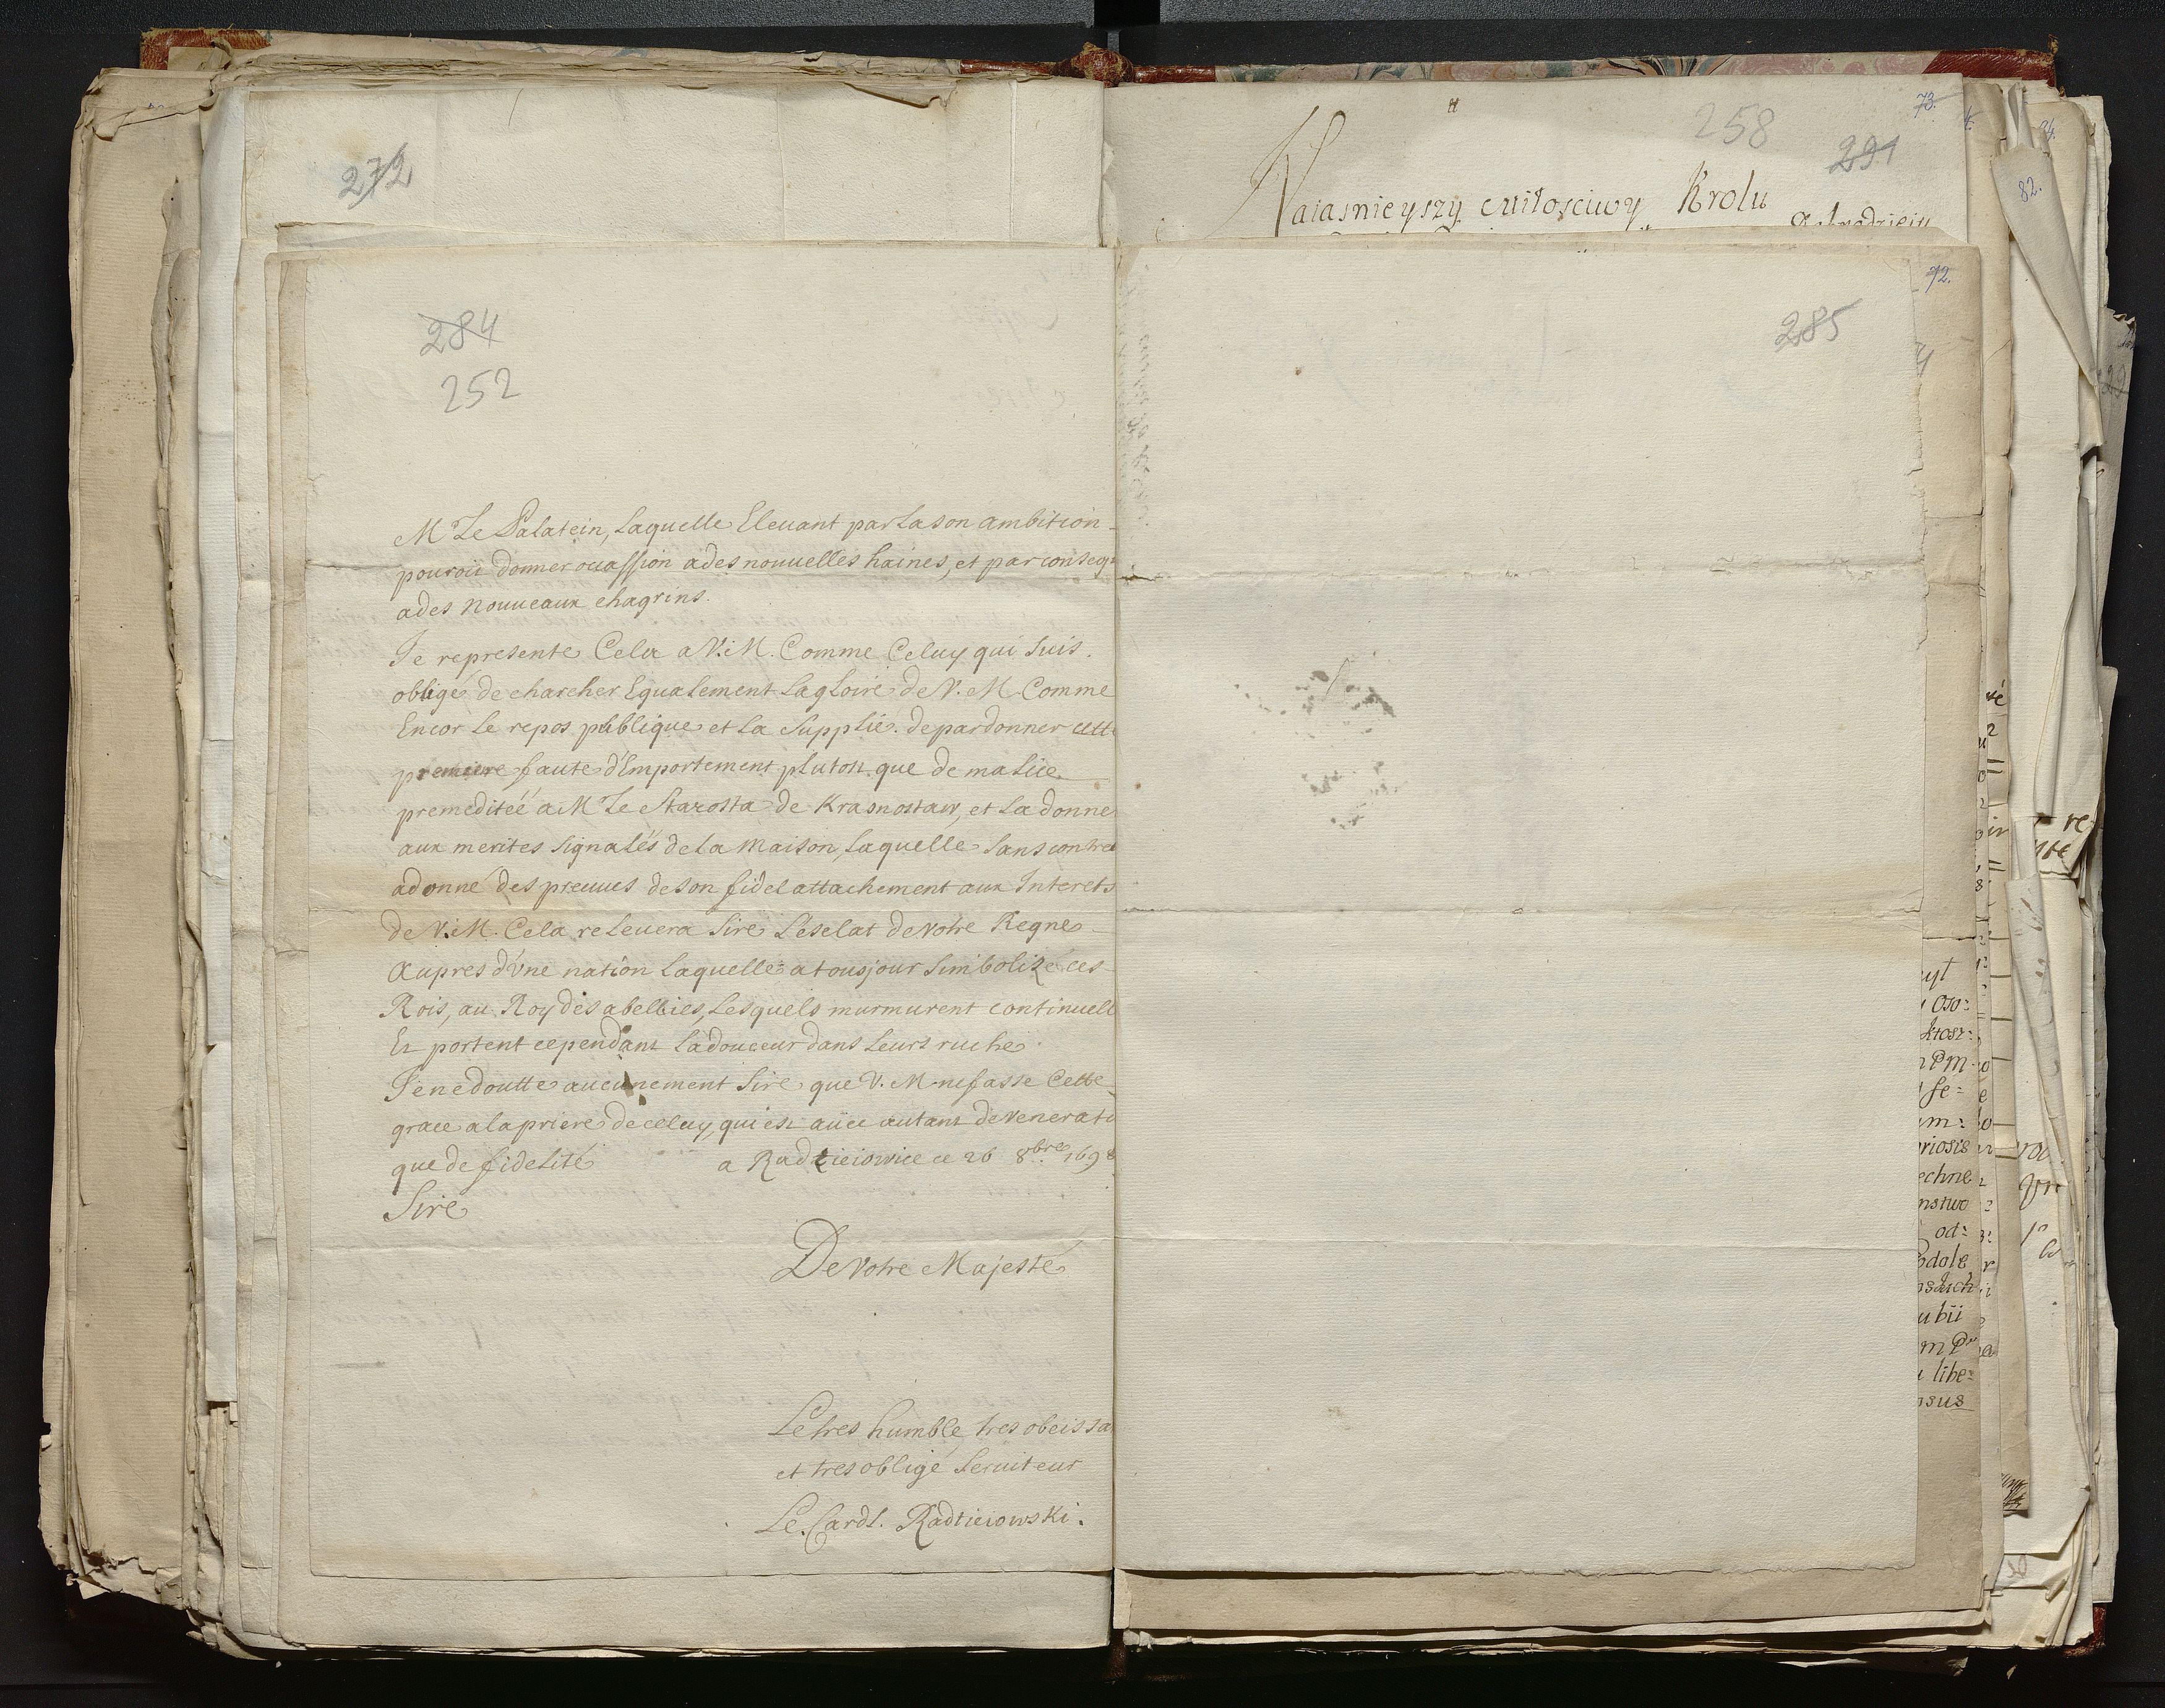 272
284
252
M Le Palatein, Laquelle Elevant par La son ambition
pouroit donner ocassion a des nouuelles haines, et par conseq
a des Nouueaux chagrins.
Je represente Cela a V. M. Comme Celuy qui suis
obligé de charcher Egualement La gloire de V. M. Comme
Encor Le repos publique et La Supplie de pardonner cette
premiere faute d'Emportement plutost que de malice
premeditéé a M Le Starosta de Krasnostaw, et La donne
aux merites signalés de La Maison, Laquelle sans contre
a donné des preuues de son fidel attachement aux Interets
de V. M. Cela releuera Sire L'esclat de Votre Regne
Aupres d'Vne nation Laquelle a tousjour simbolizé ces
Rois, au Roy des abellies, Lesquels murmurent continuell
Et portent cependant La douceur dans Leurs ruche
Je ne doutte aucunement Sire que V. M. ne fasse Cette
grace a la priere de celuy, qui est auec autant de Venerati
que de fidelité a Radzieiowice ce 26 8bre 1698
Sire
De Votre Majesté
Le tres humble tres obeissa
et tres obligé Seruiteur
Le Cardl. Radzieiowski.
73.
258
291
Naiasnieyszy Miłosciwy Krolu
72.
285
82.
oso:
ktosz:
se=
riosis
echne
nstwo
od:
ubii
libe=
nsus